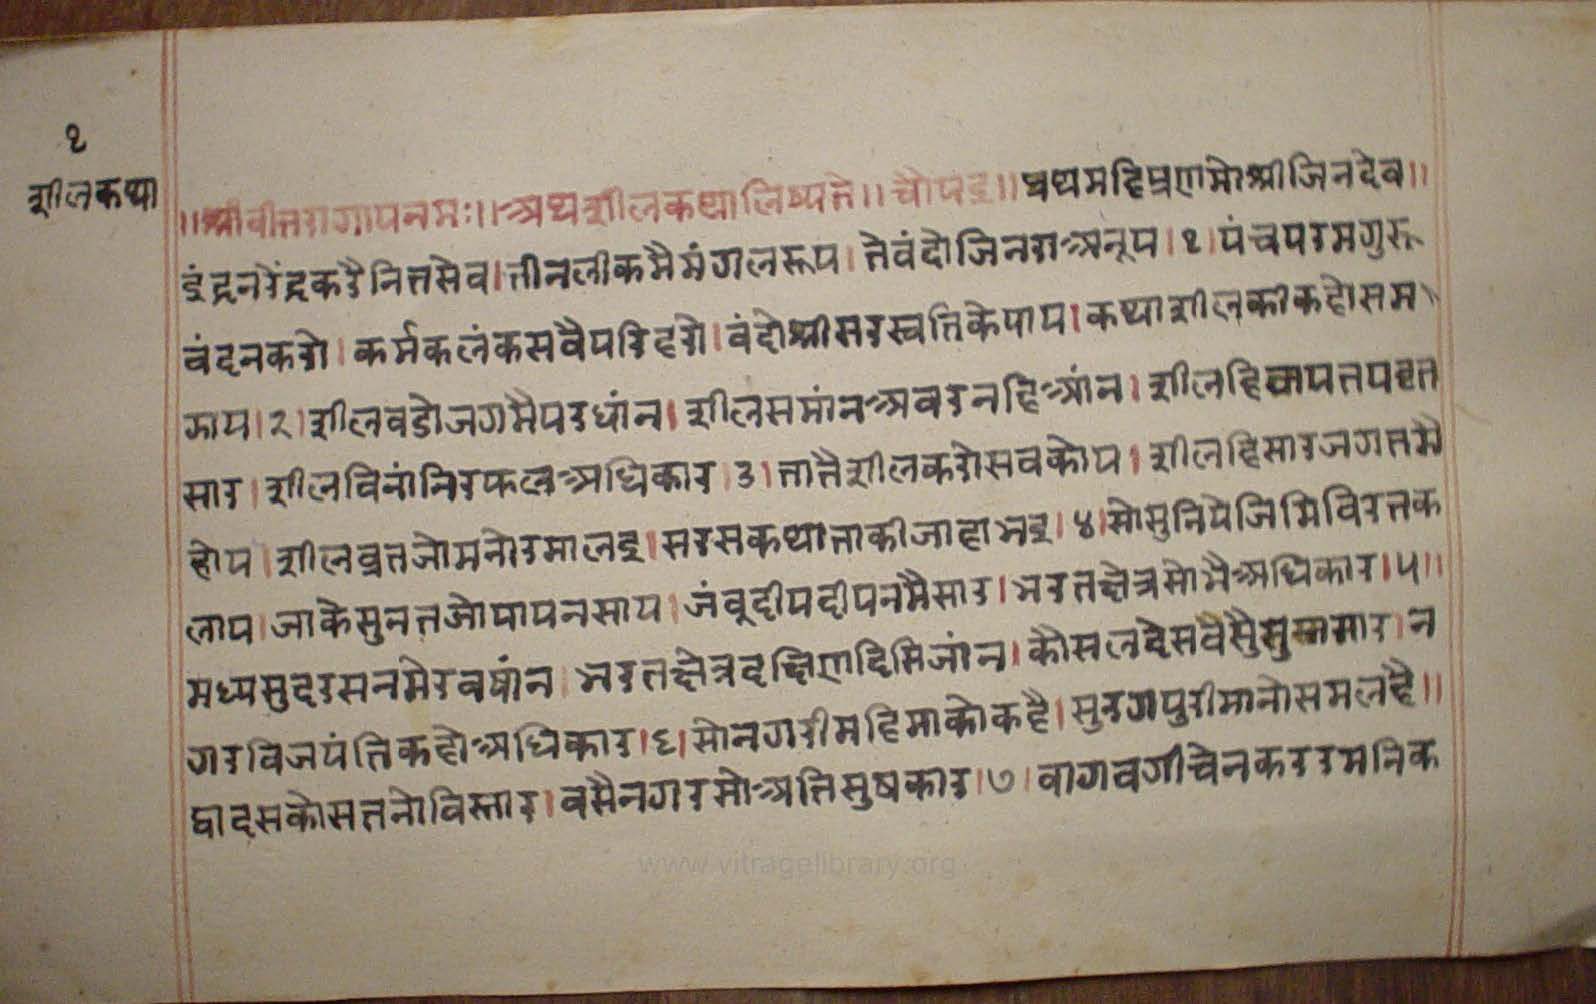 १
शीलकथा
।।श्रीवीतरागायनमः।।अथशीलकथालिष्यते।।चौपई।।प्रथमहिप्रणमोश्रीजिनदेव।।
इंद्रनरेंद्रकरैनितसेव।तीनलोकमैमंगलरूप।तेवंदोजिनराजअनूप।१।पंचपरमगुरू
वंदनकरो।कर्मकलंकसवैपरिहरो।वंदोश्रीसरस्वतिकेपाय।कथाशीलकीकहोसम
साय।२।शीलवडोजगमैपरधांन।शीलसमांनअवरनहिआंन।शीलहिजपतपव्रत
सार।शीलविनांनिरफलअधिकार।३।तातैशीलकरोसवकोय।शीलहिसारजगतमै
होय।शीलव्रतजोमनोरमालइ।सरसकथाताकीजोहाभइ।४।सोसुनियेजिमिविरतक
लाय।जाकेसुनतजोपापनसाय।जंवूदीपदीपनमैसार।भरतक्षेत्रसोमैअधिकार।५।।
मध्यसुदरसनमेरवषांन।भरतक्षेत्रदक्षिणदिसिजांन।कौसलदेसवसै।न
गरविजयंतिकहोअधिकार।६।सोनगरीमहिमाकोकहै।सुरगपुरीमानोसमलहै।।
द्वादसकोसतनोविस्तार।वसैनगरसोअतिसुषकार।७।वागवगीचेनकररमनिक
www.vitragelibrary.org